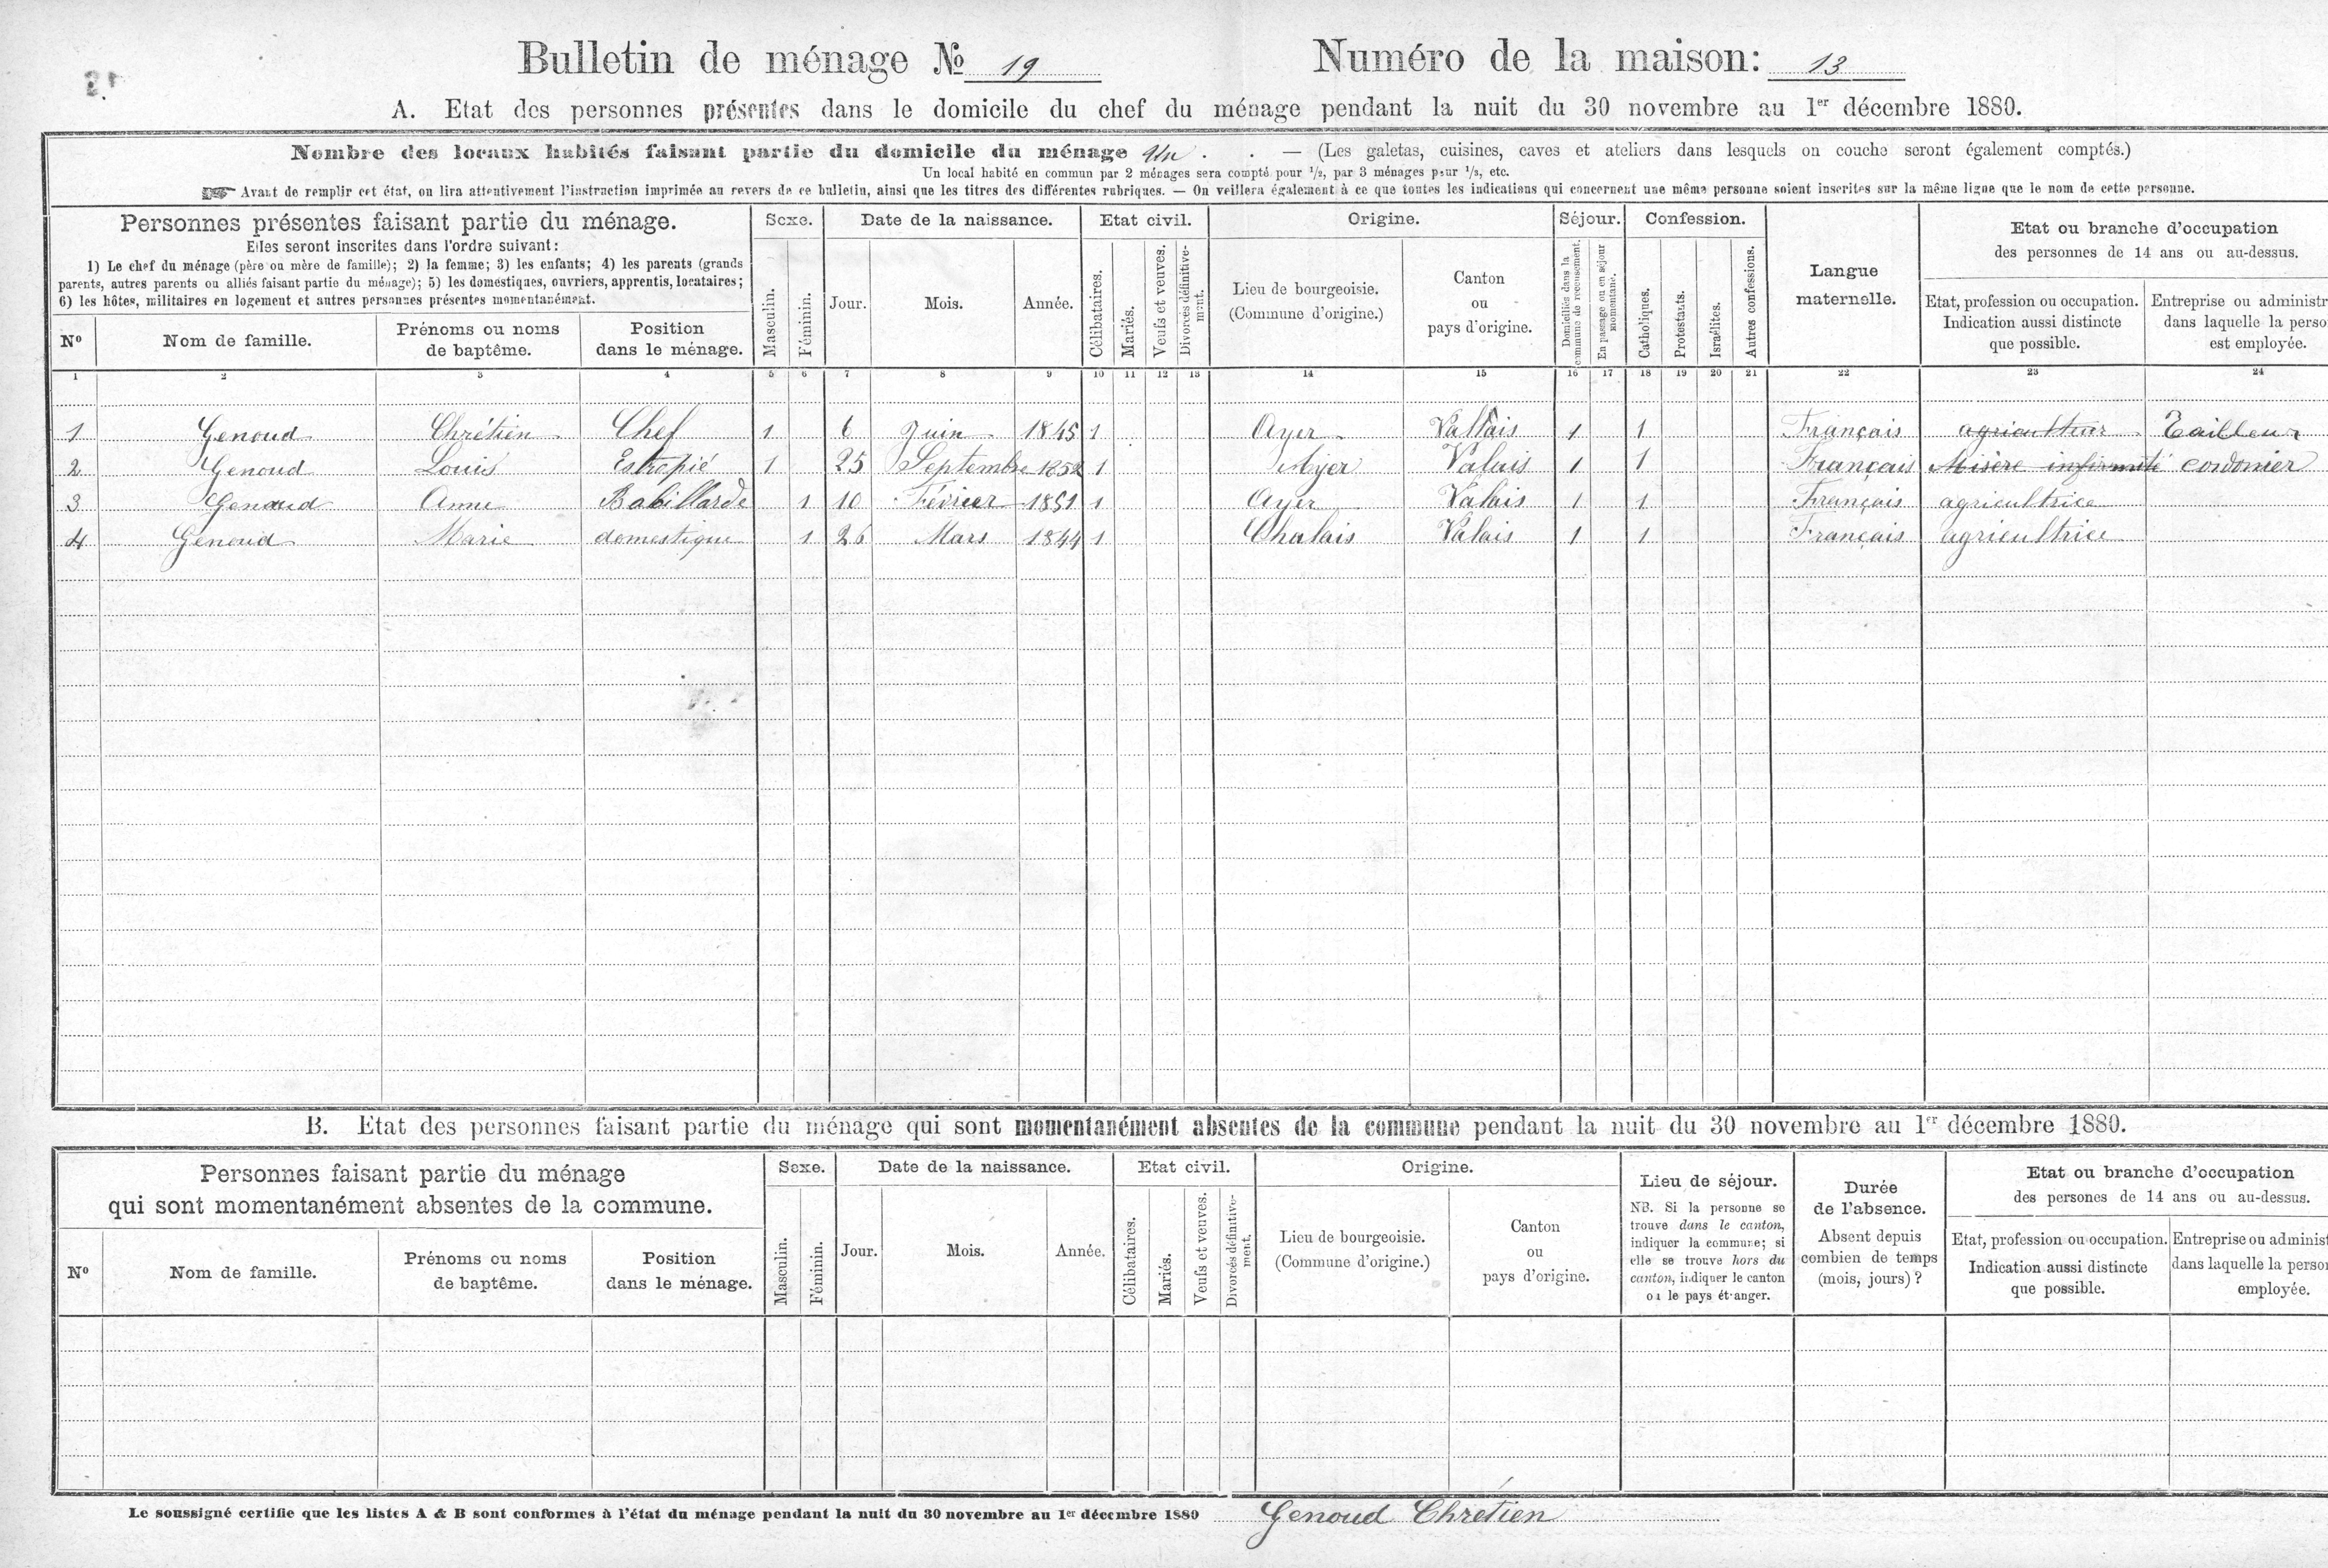 Bulletin de ménage No 19 Numéro de la maison: 13
A. Etat des personnes présentes dans le domicile du chef du ménage pendant la nuit du 30 novembre au 1er décembre 1880.
Nombre des locaux habités faisant partie du domicile du ménage Un . . — (Les galetas, cuisines, caves et ateliers dans lesquels on couche seront également comptés.)
Un local habité en commun par 2 ménages sera compté pour 1/2, par 3 ménages pour 1/3, etc.
Avant de remplir cet état, on lira attentivement l'instruction imprimée au revers de ce bulletin, ainsi que les titres des différentes rubriques. — On veillera également à ce que toutes les indications qui concernent une même personne soient inscrites sur la même ligne que le nom de cette personne.
Personnes présentes faisant partie du ménage.
Elles seront inscrites dans l'ordre suivant:
1) Le chef du ménage (père ou mère de famille); 2) la femme; 3) les enfants; 4) les parents (grands
parents, autres parents ou alliés faisant partie du ménage); 5) les domestiques, ouvriers, apprentis, locataires;
6) les hôtes, militaires en logement et autres personnes présentes momentanément.
No
Nom de famille.
Prénoms ou noms
de baptême.
Position
dans le ménage.
Sexe.
Masculin.
Féminin.
Date de la naissance.
Jour.
Mois.
Année.
Etat civil.
Célibataires.
Mariés.
Veufs et veuves.
Divorcés définitive-
ment.
Origine.
Lieu de bourgeoisie.
(Commune d'origine.)
Canton
ou
pays d'origine.
Séjour.
Domiciliés dans la
commune de recensement.
En passage ou en séjour
momentané.
Confession.
Catholiques.
Protestants.
Israélites.
Autres confessions.
Langue
maternelle.
Etat ou branche d'occupation
des personnes de 14 ans ou au-dessus.
Etat, profession ou occupation.
Indication aussi distincte
que possible.
Entreprise ou administr
dans laquelle la perso
est employée.
1 2 3 4 5 6 7 8 9 10 11 12 13 14 15 16 17 18 19 20 21 22 23 24
1 Genoud Chrétien Chef 1 6 Juin 1845 1 Ayer Vallais 1 1 Français agriculteur Tailleur
2 Genoud Louis Estropié 1 25 Septembre 1852 1 Ayer Valais 1 1 Français Misère infirmité cordonier
3 Genoud Anne Babillarde 1 10 Février 1851 1 Ayer Valais 1 1 Français agricultrice
4 Genoud Marie domestique 1 26 Mars 1844 1 Chalais Valais 1 1 Français agricultrice
B. Etat des personnes faisant partie du ménage qui sont momentanément absentes de la commune pendant la nuit du 30 novembre au 1er décembre 1880.
Personnes faisant partie du ménage
qui sont momentanément absentes de la commune.
No
Nom de famille.
Prénoms ou noms
de baptême.
Position
dans le ménage.
Sexe.
Masculin.
Féminin.
Date de la naissance.
Jour.
Mois.
Année.
Etat civil.
Célibataires.
Mariés.
Veufs et veuves.
Divorcés définitive-
ment.
Origine.
Lieu de bourgeoisie.
(Commune d'origine.)
Canton
ou
pays d'origine.
Lieu de séjour.
NB. Si la personne se
trouve dans le canton,
indiquer la commune; si
elle se trouve hors du
canton, indiquer le canton
ou le pays étranger.
Durée
de l'absence.
Absent depuis
combien de temps
(mois, jours) ?
Etat ou branche d'occupation
des persones de 14 ans ou au-dessus.
Etat, profession ou occupation.
Indication aussi distincte
que possible.
Entreprise ou administ
dans laquelle la perso
employée.
Le soussigné certifie que les listes A & B sont conformes à l'état du ménage pendant la nuit du 30 novembre au 1er décembre 1880 Genoud Chrétien